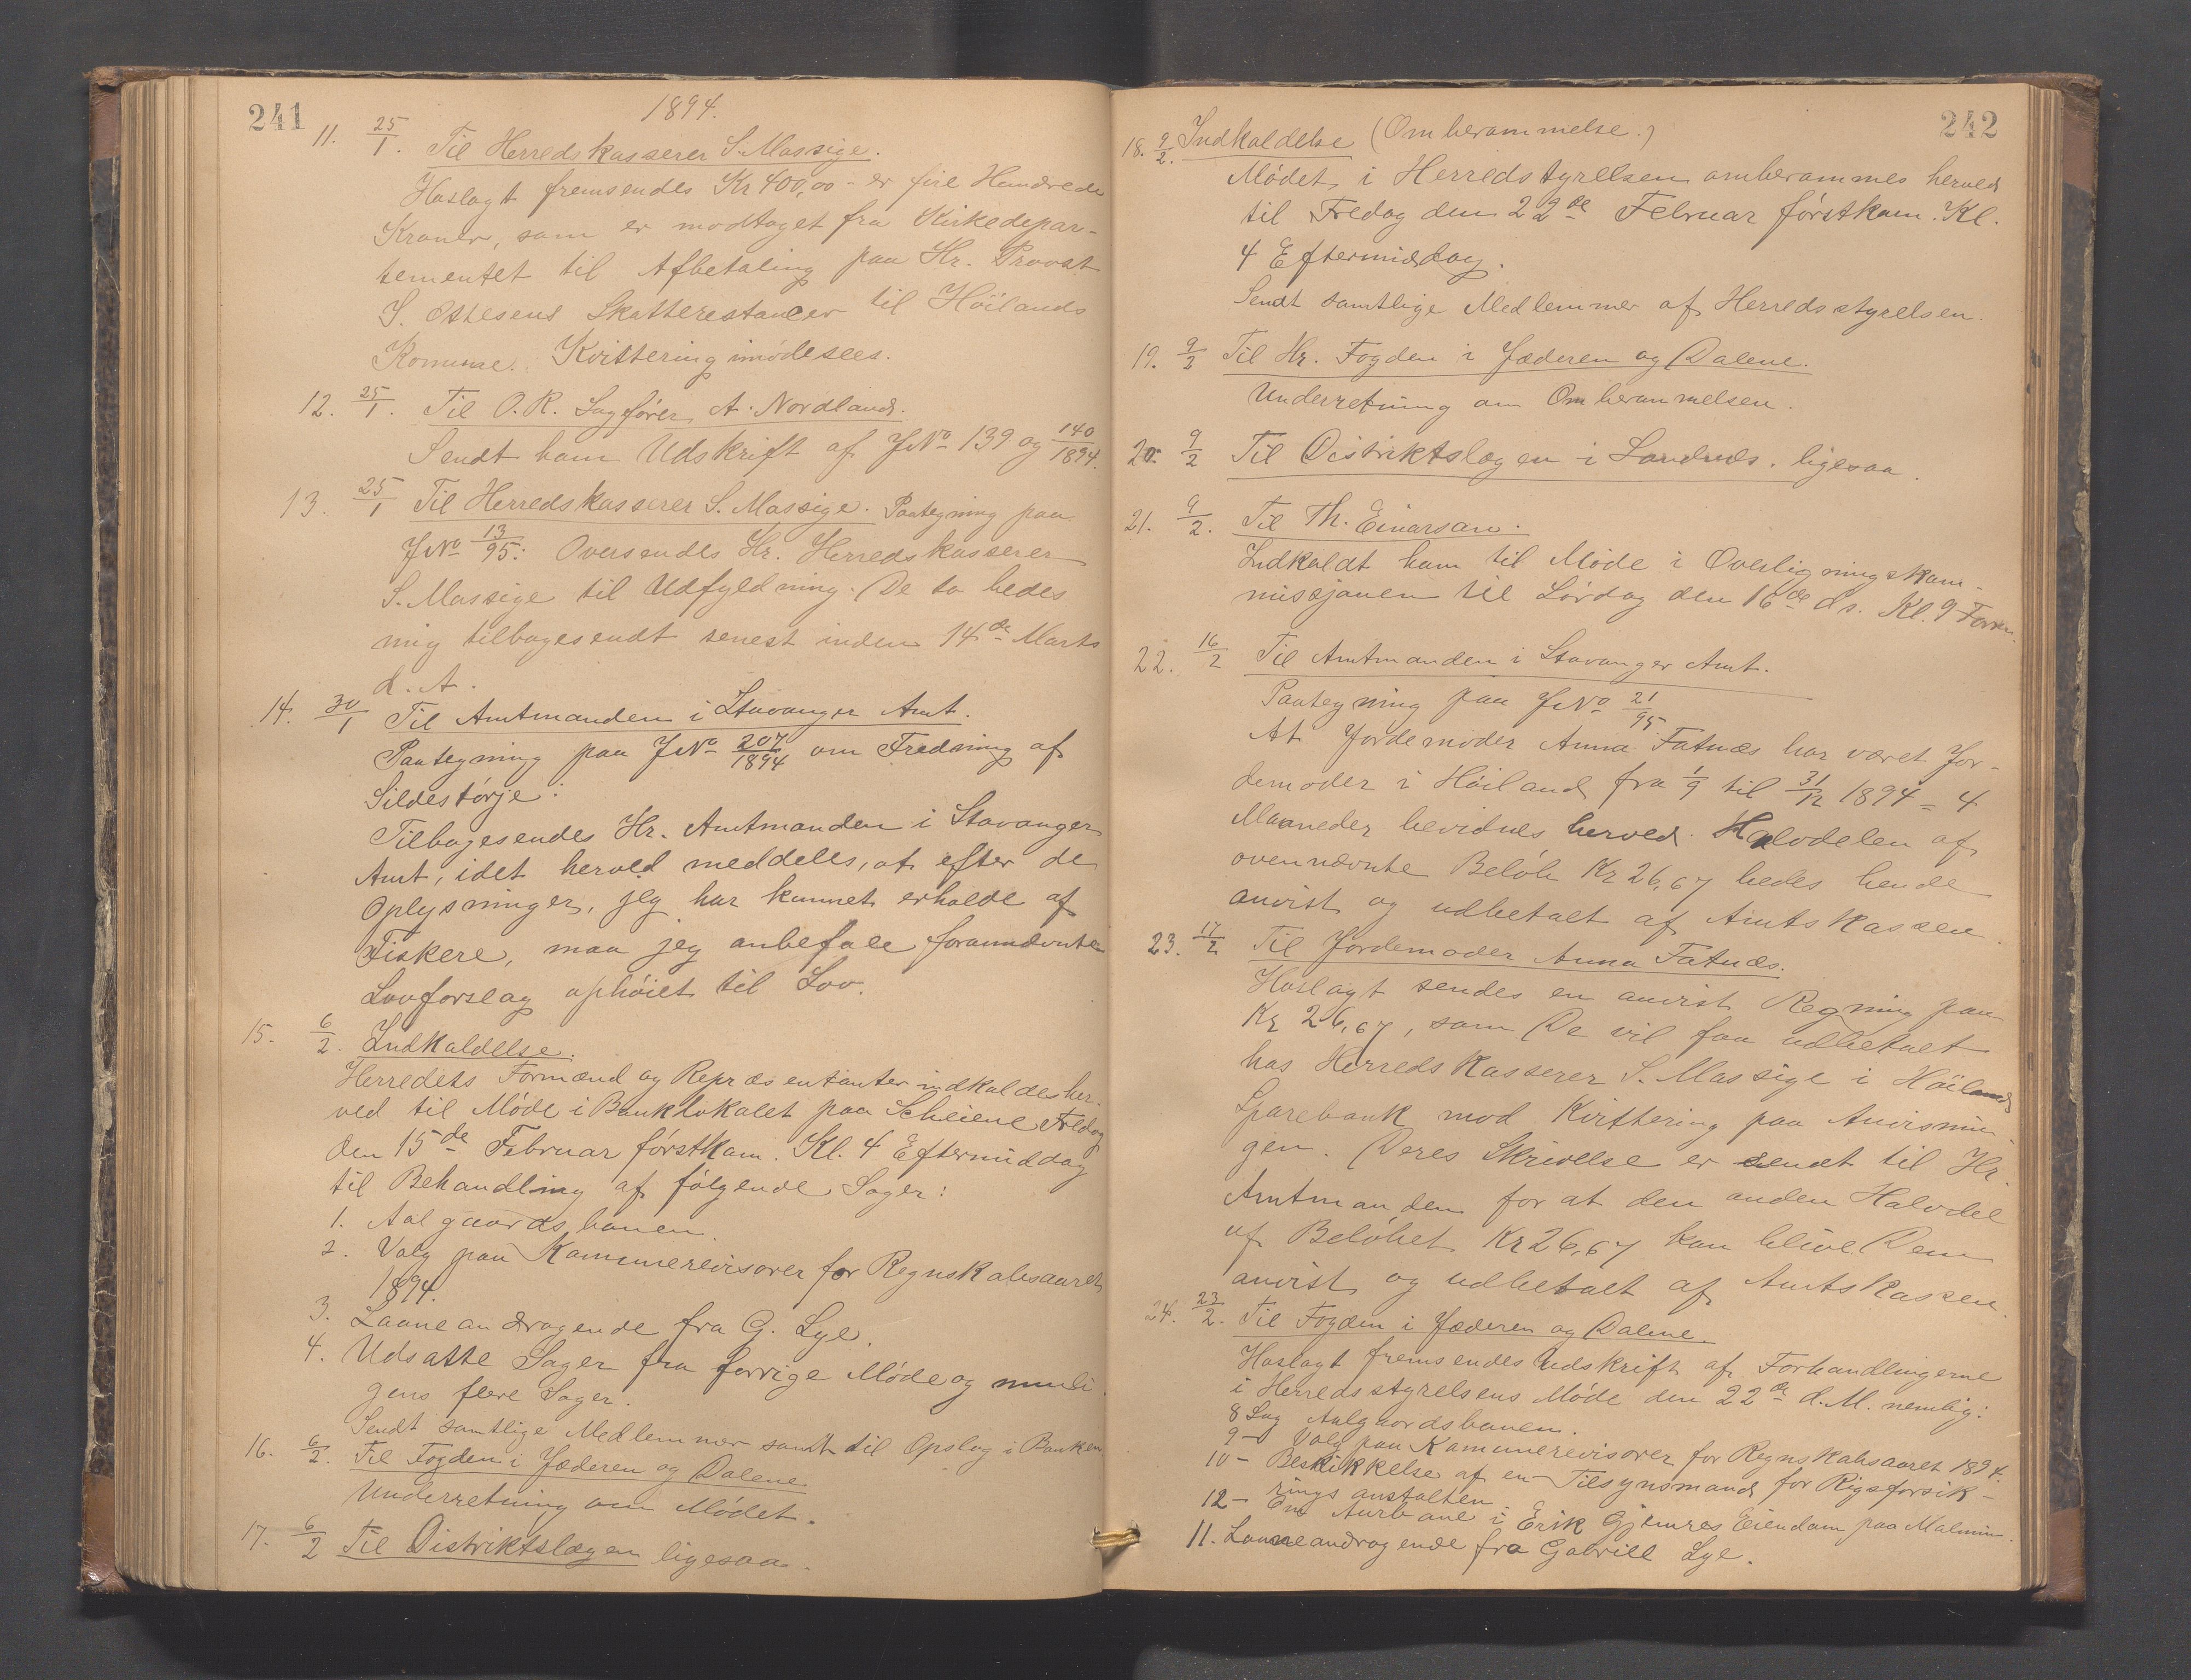 241
1894.
11. 25/1. Til Herredskasserer S. Massige.
Hoslagt fremsendes Kr 400,00 - er fire Hundrede
Kroner, som er modtaget fra Kirkedepar-
tementet til Afbetaling paa Hr. Provst
S. Ottesens Skatterestancer til Höilands
Komune. Kvittering imödesees.
12. 25/1. Til O.R. Sagförer A. Nordland.
Sendt ham Udskrift af JNo 139 og 140/1894.
13. 25/1 Til Herredskasserer S. Massige. Paategning paa
JNo 13/95: Oversendes Hr. Herredskasserer
S. Massige til Udfyldning. De to bedes
mig tilbagesendt senest inden 14de Marts
d. A.
14. 30/1 Til Amtmanden i Stavanger Amt.
Paategning paa JNo 207/1894 om Fredning af
Sildestörje:
Tilbagesendes Hr. Amtmanden i Stavanger
Amt, idet herved meddeles, at efter de
Oplysninger, jeg har kunnet erholde af
Fiskere, maa jeg anbefale forannævnte
Lovforslag ophöiet til Lov.
15. 6/2. Indkaldelse.
Herredets Formænd og Repræsentanter indkaldes her-
ved til Möde i Banklokalet paa Scheiene Fredag
den 15de Februar förstkom. Kl. 4 Eftermiddag
til Behandling af fölgende Sager:
1. Aalgaardsbanen.
2. Valg paa Komunerevisorer for Regnskabsaaret
1894.
3. Laaneandragende fra G. Lye.
4. Udsatte Sager fra forrige Möde og muli-
gens flere Sager.
Sendt samtlige Medlemmer samt til Opslag i Banken
16. 6/2. Til Fogden i Jæderen og Dalene
Underretning om Mödet.
17. 6/2 Til Distriktslægen ligesaa.
242
18. 9/2. Indkaldelse (Omberammelse.)
Mödet i Herredstyrelsen omberammes herved
til Fredag den 22de Februar förstkom. Kl.
4 Eftermiddag.
Sendt samtlige Medlemmer af Herredsstyrelsen.
19. 9/2 Til Hr. Fogden i Jæderen og Dalene.
Underretning om Omberammelsen.
20. 9/2 Til Distriktslægen i Sandnes. ligesaa.
21. 9/2. Til Th. Einarsen.
Indkaldt ham til Möde i Overligningskom-
missjonen til Lördag den 16de ds. Kl. 9 Form.
22. 16/2 Til Amtmanden i Stavanger Amt.
Paategning paa JNo 21/95
At Jordemoder Anna Fatnæs har været Jor-
demoder i Höiland fra 1/9 til 31/12 1894 = 4
Maaneder bevidnes herved. Halvdelen af
ovennævnte Belöb Kr 26,67 bedes hende
anvist og udbetalt af Amtskassen.
23. 17/2 Til Jordemoder Anna Fatnæs.
Hoslagt sendes en anvist Regning paa
Kr 26,67, som De vil faa udbetalt
hos Herredskasserer S. Massige i Höilands
Sparebank mod Kvittering paa Anvisnin-
gen. Deres Skrivelse er sendt til Hr.
Amtmanden for at den anden Halvdel
af Belöbet Kr 26,67 kan blive Dem
anvist og udbetalt af Amtskassen.
24. 23/2. Til Fogden i Jæderen og Dalene.
Hoslagt fremsendes Udskrift af Forhandlingerne
i Herredsstyrelsens Möde den 22de d. M. nemlig:
8 Sag Aalgaardsbanen.
9 - Valg paa Komunerevisorer for Regnskabsaaret 1894.
10 - Beskikkelse af en Tilsynsmand for Rigsforsik-
rings anstalten
12 - Om Aurbane i Erik Gjemres Eiendom paa Malmin.
11. Laaneandragende fra Gabriell Lye.